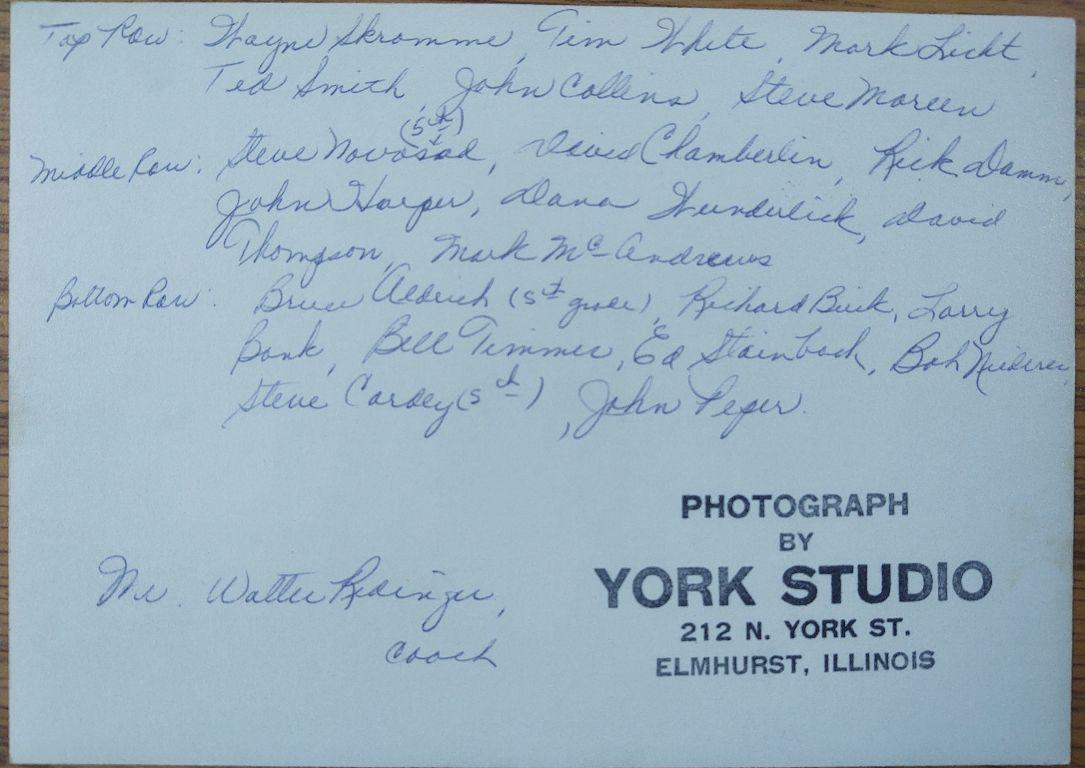 Top Row: Wayne Skromme, Tim White, Mark Licht,
Ted Smith, John Collins, Steve Moreen
(5th)
Middle Row: Steve Novosad, David Chamberlin, Rick Damm,
John Harper, Dana Wunderlick, David
Thompson, Mark McAndrews
Bottom Row: Bruce Aldrich (5th grade), Richard Buik, Larry
Bank, Bill Timmer, Ed Stainback, Bob
Steve Cardey (5th), John Peper.
Mr. Walter Redinger,
coach
PHOTOGRAPH
BY
YORK STUDIO
212 N. YORK ST.
ELMHURST, ILLINOIS